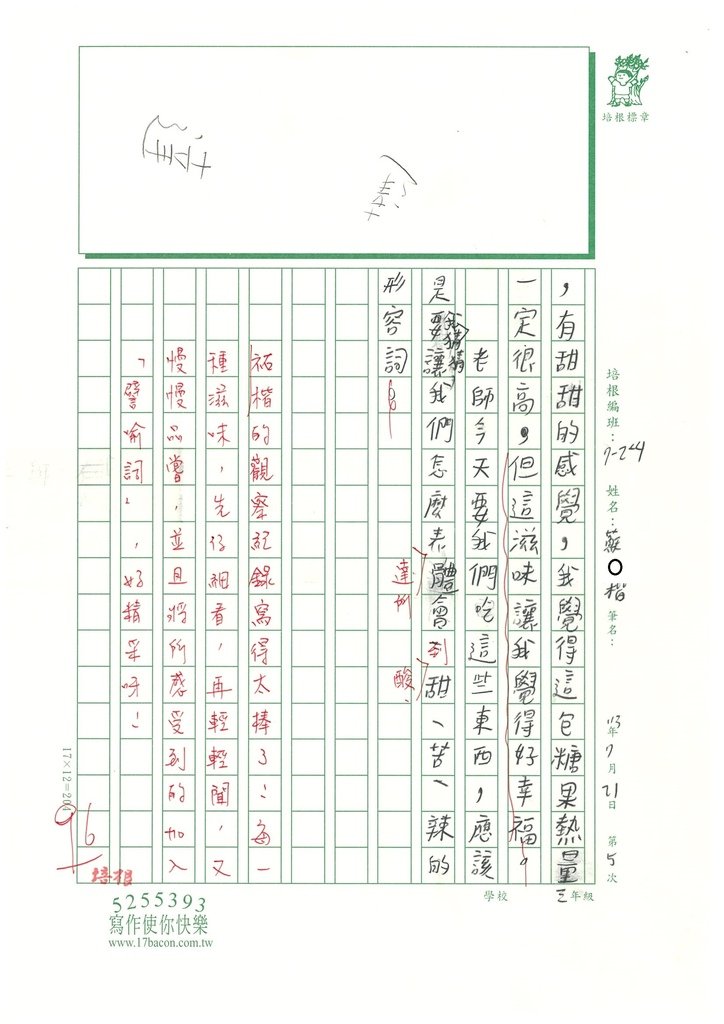 培根標章
培根編班：7-244 姓名：蘇○楷 筆名： 113年7月21日 第5次
三年級
學校
達
，有甜甜的感覺，我覺得這包糖果熱量
一定很高，但這滋味讓我覺得好幸福。
老師今天要我們吃這些東西，應該
我猜猜，
是要讓我們怎麼表體會到甜、苦、辣的
達例
酸、
形容詞。
祐楷的觀察記錄寫得太棒了！每一
種滋味，先仔細看，再輕輕聞，又
慢慢品嘗，並且將所感受到的加入
「譬喻詞」，好精采呀！
17×12=204
96
培根
5255393
寫作使你快樂
www.17bacon.com.tw